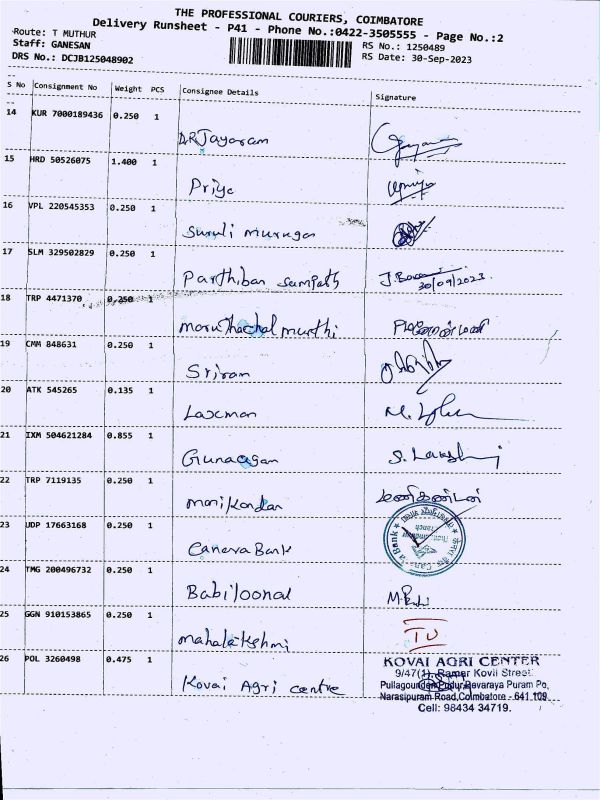 THE PROFESSIONAL COURIERS, COIMBATORE
Delivery Runsheet - P41 - Phone No.:0422-3505555 - Page No.:2
Route: T MUTHUR
Staff: GANESAN
RS No.: 1250489
DRS No.: DCJB125048902
RS Date: 30-Sep-2023
S No Consignment No Weight PCS Consignee Details Signature
14 KUR 7000189436 0.250 1
D.R Jayaram
15 HRD 50526075 1.400 1
Priya
16 VPL 220545353 0.250 1
Suruli murugan
17 SLM 329502829 0.250 1
Parthiban Sampath
30/09/2023
18 TRP 4471370 0.250 1
maruthachal murthi
19 CMM 848631 0.250 1
Sriram
20 ATK 545265 0.135 1
Laxman
21 IXM 504621284 0.855 1
Gunaagan S. Lakshmi
22 TRP 7119135 0.250 1
manikandan மணிகண்டன்
23 UDP 17663168 0.250 1
Canera Bank
24 TMG 200496732 0.250 1
Babiloonal
25 GGN 910153865 0.250 1
mahalakshmi
26 POL 3260498 0.475 1
Kovai Agri centre
KOVAI AGRI CENTER
9/47(1), Ramar Kovil Street,
Pullagoundan Pudur, Devaraya Puram Po,
Narasipuram Road, Coimbatore - 641 109.
Cell: 98434 34719.